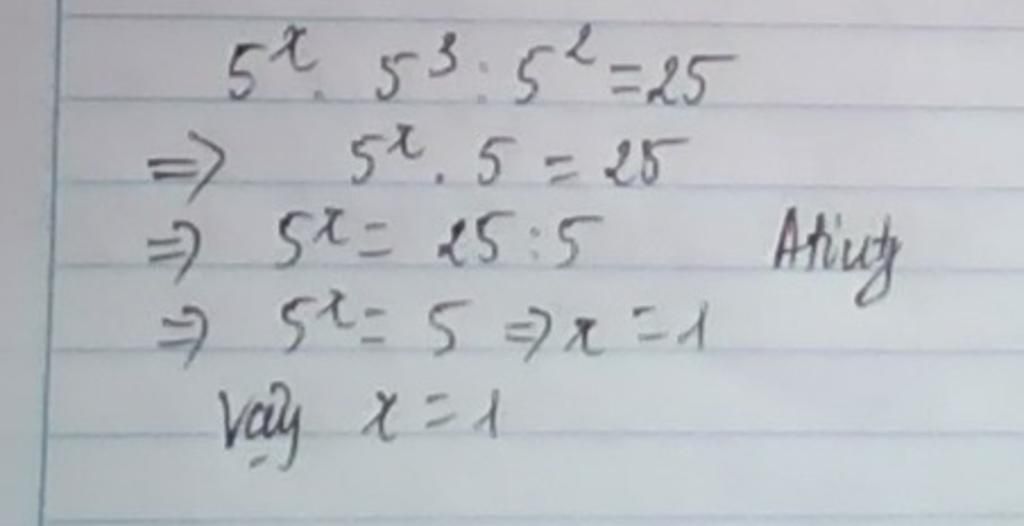 5^x . 5^3 : 5^2 = 25
=> 5^x . 5 = 25
=> 5^x = 25 : 5
=> 5^x = 5 => x = 1
Vậy x = 1